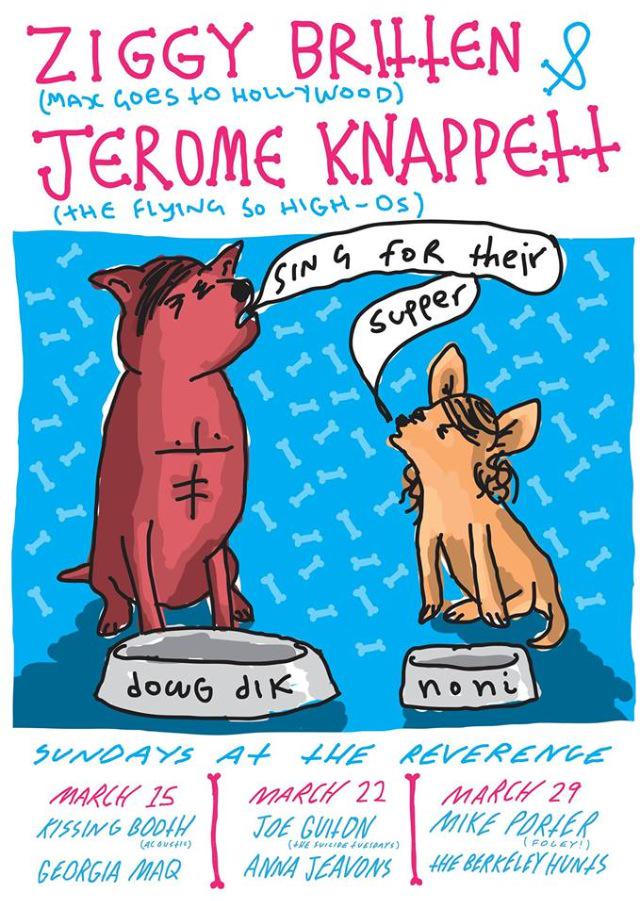 ZIGGY BRITTEN &
(MAX GOES TO HOLLYWOOD)
JEROME KNAPPETT
(THE FLYING SO HIGH-OS)
SING FOR their
supper
dowg dik
noni
SUNDAYS AT THE REVERENCE
MARCH 15
KISSING BOOTH
(ACOUSTIC)
GEORGIA MAQ
MARCH 22
JOE GUITON
(THE SUICIDE TUESDAYS)
ANNA JEAVONS
MARCH 29
MIKE PORTER
(FOLEY!)
THE BERKELEY HUNTS